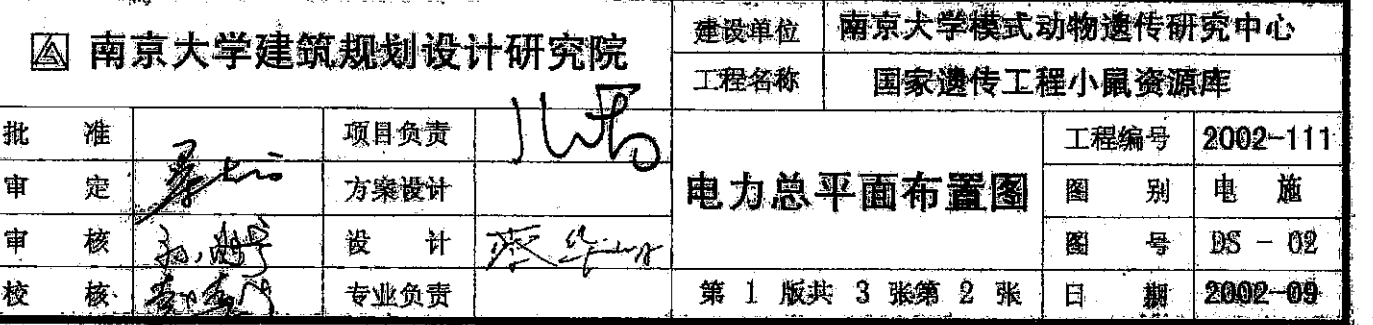 南京大学建筑规划设计研究院
建设单位 南京大学模式动物遗传研究中心
工程名称 国家遗传工程小鼠资源库
批 准 项目负责
审 定 方案设计
审 核 设 计
校 核 专业负责
电力总平面布置图
第 1 版共 3 张第 2 张
工程编号 2002-111
图 别 电 施
图 号 DS - 02
日 期 2002-09